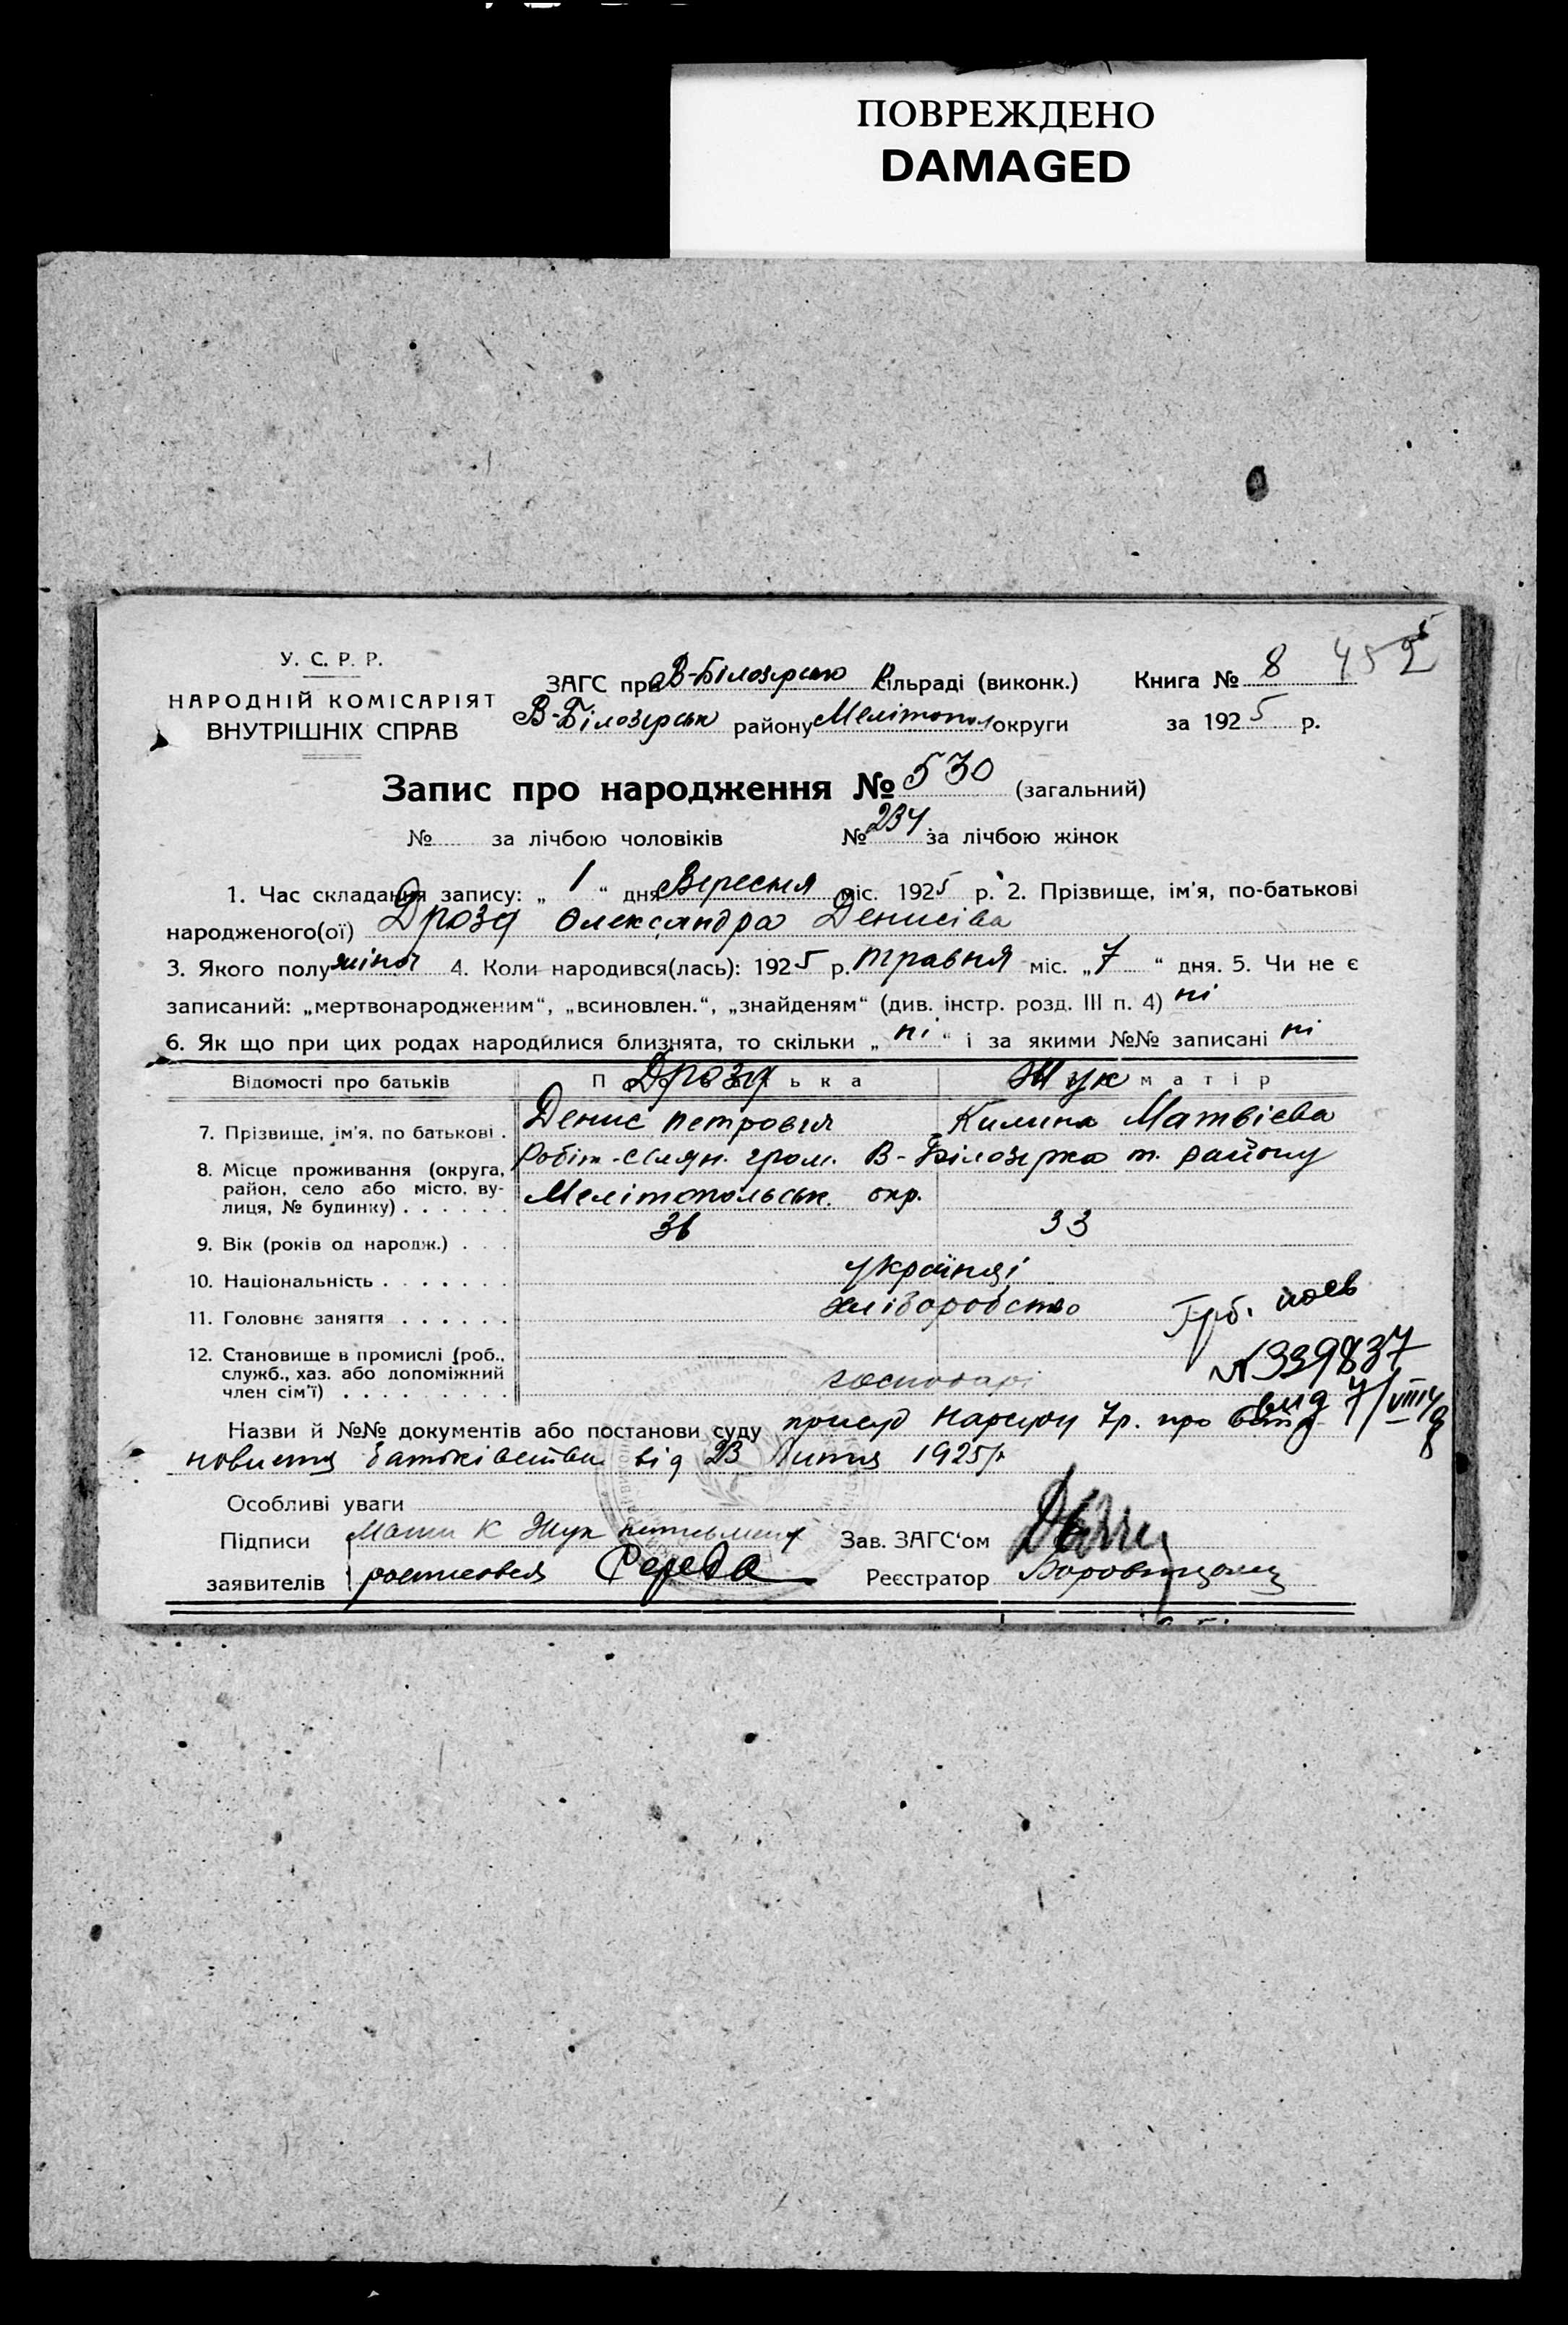 ПОВРЕЖДЕНО
DAMAGED
У. С. Р. Р.
НАРОДНІЙ КОМІСАРІЯТ
ВНУТРІШНІХ СПРАВ
ЗАГС при В-Білозірсько сільраді (виконк.)
В-Білозірськ району Мелітопол округи
Книга № 8 452
за 1925 р.
Запис про народження № 530 (загальний)
№ за лічбою чоловіків № 234 за лічбою жінок
1. Час складання запису: „ 1 “ дня Вересня міс. 1925 р. 2. Прізвище, ім'я, по-батькові
народженого(ої) Дрозд Олександра Денисіва
3. Якого полу жіноч 4. Коли народився(лась): 1925 р. травня міс. „ 7 “ дня. 5. Чи не є
записаний: „мертвонародженим“, „всиновлен.“, „знайденям“ (див. інстр. розд. III п. 4) ні
6. Як що при цих родах народилися близнята, то скільки „ ні “ і за якими №№ записані ні
Відомості про батьків Дрозд ь к а Жук м а т і р
7. Прізвище, ім'я, по батькові . Денис Петрович Килина Матвієва
8. Місце проживання (округа, район, село або місто, вулиця, № будинку) . . . . . . Робіт-селян. гром. В-Білозірка т. району
Мелітопольськ. окр.
9. Вік (років од народж.) . . . 36 33
10. Національність . . . . . . . українці
11. Головне заняття . . . . . . хліборобство
12. Становище в промислі (роб., служб., хаз. або допоміжний член сім'ї) . . . . . . . . . господарі
№ 339837
Назви й №№ документів або постанови суду присуд Нарсуду 7р. про
новлення батьківства від 23 Липня 1925 р
Особливі уваги
Підписи Мати К Жук
заявителів Середа
Зав. ЗАГС‘ом
Реєстратор